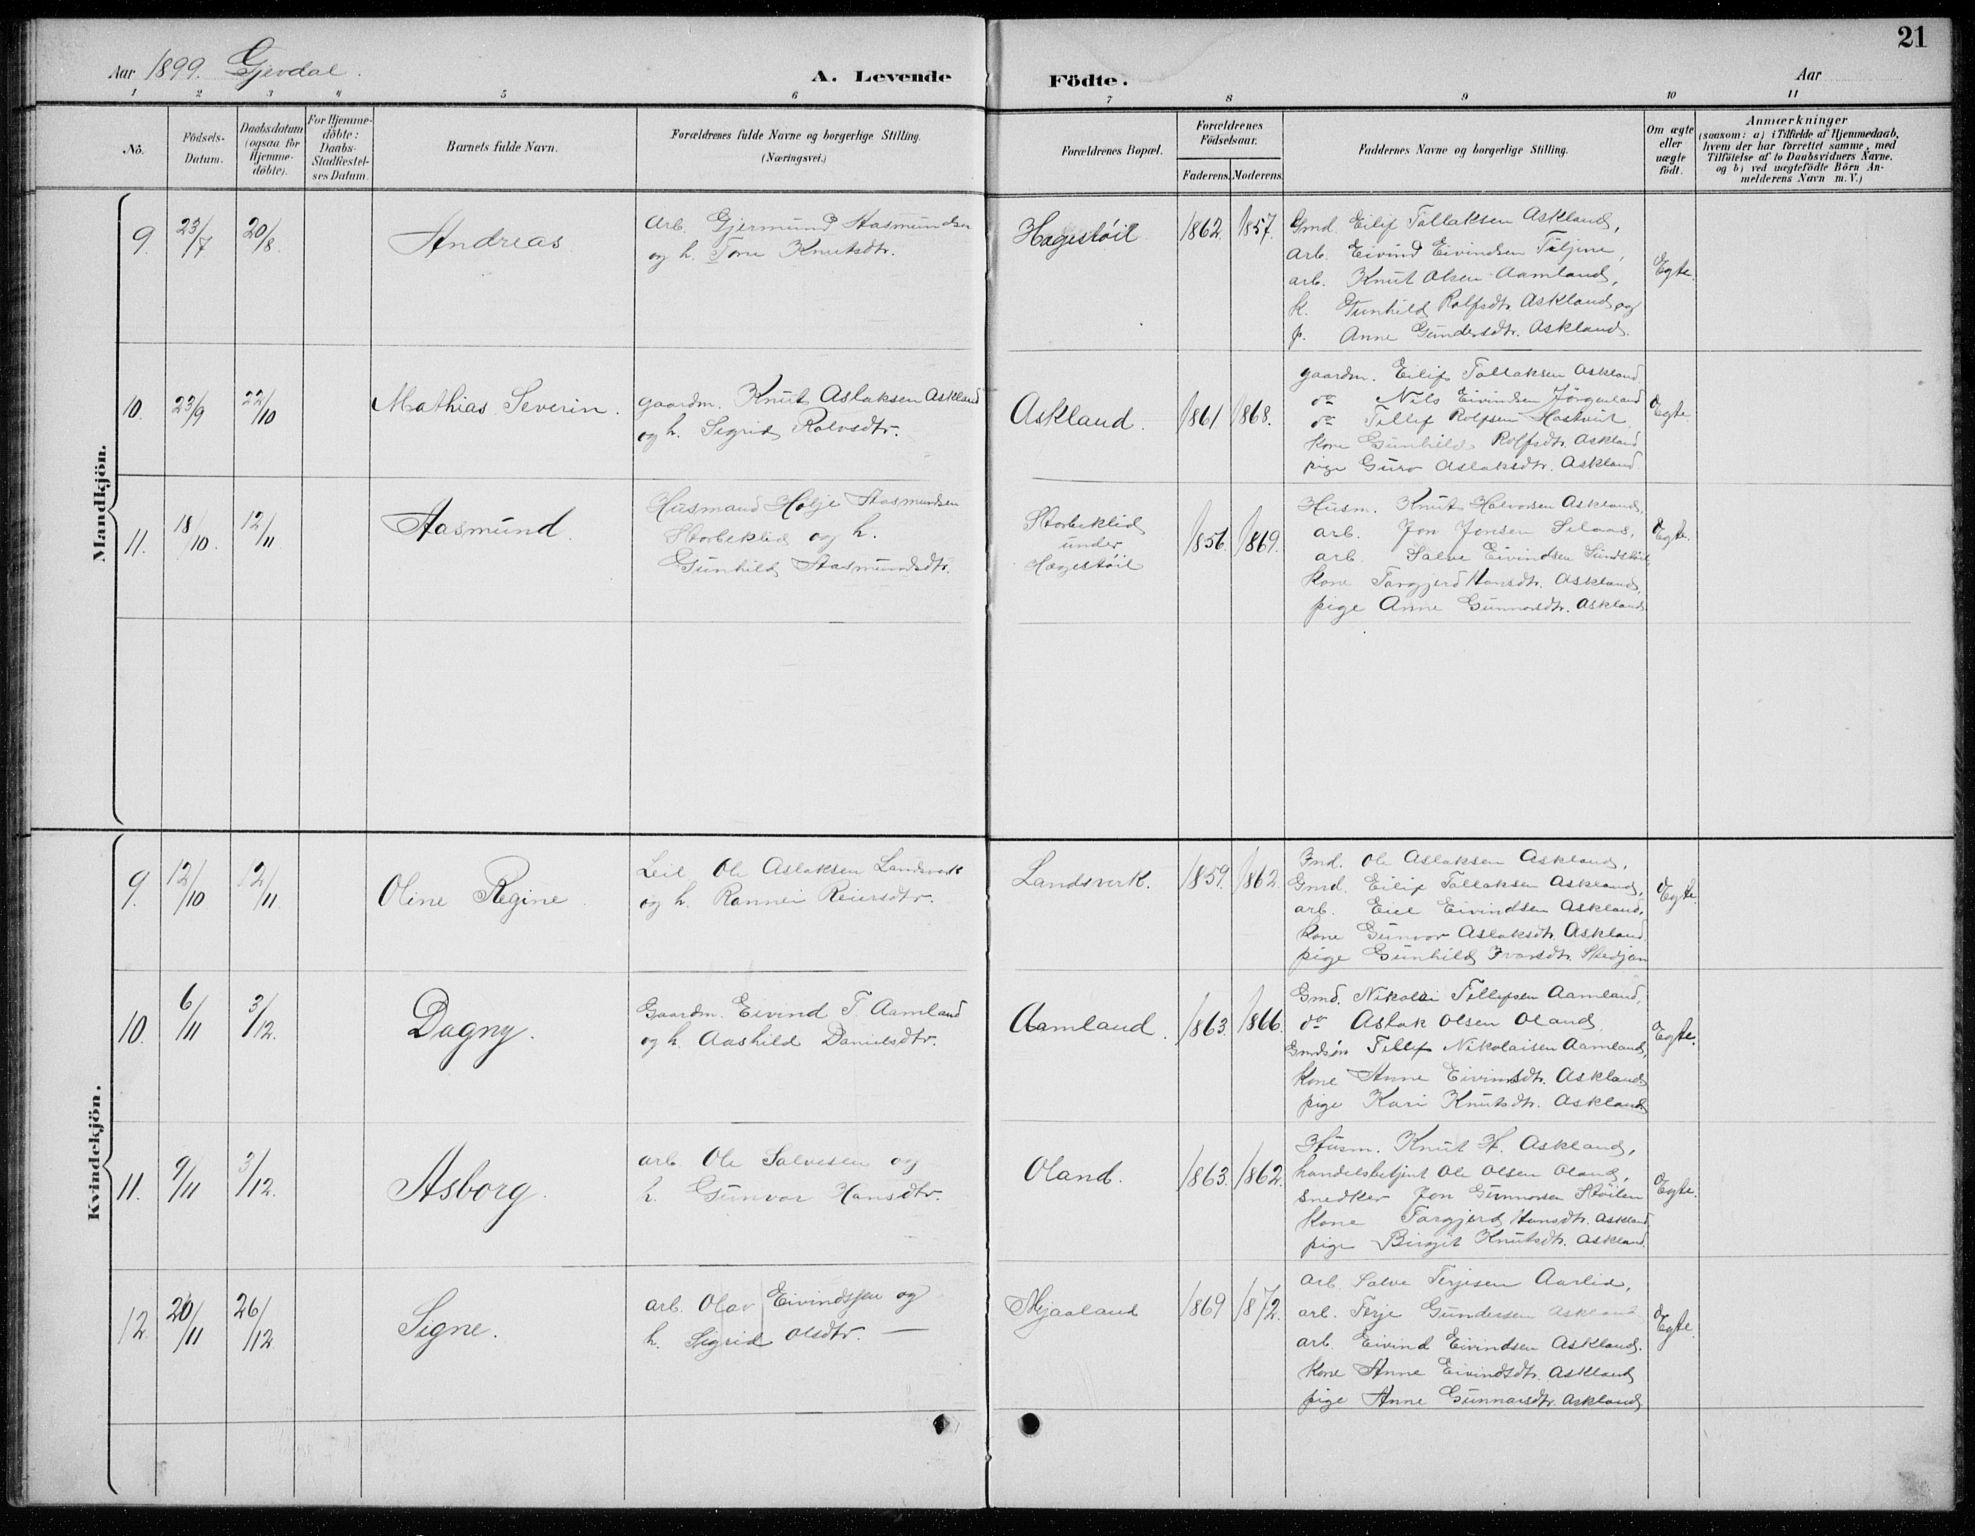 21
Aar 1899. Gjevdal.
A. Levende Födte.
Aar
1 2 3 4 5 6 7 8 9 10 11
Nô.
Födsels-
Datum.
Daabsdatum
(ogsaa för
Hjemme-
döbte).
For Hjemme-
döbte:
Daabs-
Stadfæstel-
ses Datum.
Barnets fulde Navn.
Forældrenes fulde Navne og borgerlige Stilling.
(Næringsvei.)
Forældrenes Bopæl.
Forældrenes
Födselsaar.
Faderens. Moderens.
Faddernes Navne og borgerlige Stilling.
Om ægte
eller
uægte
födt.
Anmærkninger
(saasom: a) i Tilfælde af Hjemmedaab,
hvem der har forrettet samme, med
Tilföielse af to Daabsvidners Navne,
og b) ved uægtefödte Börn An-
melderens Navn m. V.)
Mandkjön.
9. 23/7 20/8 Andreas.
Arb. Gjermund Aasmundsen
og h. Tone Knutsdtr.
Hagestöil 1862. 1857.
Gmd. Eilif Tallaksen Askland,
arb. Eivind Eivindsen Tiljine,
arb. Knut Olsen Aamland,
k. Gunhild Rolfsdtr. Askland og
p. Anne Gundersdtr. Askland.
Egte.
10. 23/9 22/10 Mathias Severin.
gaardm. Knut Aslaksen Askland
og h. Sigrid Rolvsdtr.
Askland. 1861. 1868.
gaardm. Eilif Tallaksen Askland
do Nils Eivindsen Jörgenland
do Tellef Rolfsen Haatveit
kone Gunhild Rolfsdtr. Askland
pige Guro Aslaksdtr. Askland.
Egte.
11. 18/10. 12/11 Aasmund.
Husmand Holje Aasmundsen
Storbeklid og h.
Gunhild Aasmundsdtr.
Storbeklid
under
Hagestöil
1856. 1869.
Husm. Knut Halvorsen Askland,
arb. Jon Jonsen Selaas,
arb. Salve Eivindsen Sundstöil
kone Targjerd Hansdtr. Askland,
pige Anne Gunnarsdtr. Askland
Egte.
Kvindekjön.
9. 12/10 12/11 Oline Regine.
Leil. Ole Aslaksen Landsverk
og h. Rannei Reiersdtr.
Landsverk. 1859. 1862.
Ind. Ole Aslaksen Askland,
Gmd. Eilif Tallaksen Askland,
arb. Eiel Eivindsen Askland,
kone Gunvor Aslaksdtr. Askland
pige Gunhild Ivarsdtr.
Egte.
10. 6/11 3/12. Dagny.
Gaardm. Eivind T. Aamland
og h. Aashild Danielsdtr.
Aamland. 1863. 1866.
Gmd. Nikolai Tellefsen Aamland,
do Aslak Olsen Oland,
Gmdsön Tellef Nikolaisen Aamland,
kone Anne Eivindsdtr. Askland
pige Kari Knutsdtr. Askland
Egte.
11. 9/11 3/12. Asborg.
arb Ole Salvesen og
h. Gunvor Hansdtr.
Oland. 1863. 1862.
Husm. Knut H. Askland,
handelsbetjent Ole Olsen Oland,
snedker Jon Gunnarsen Stöilen
kone Targjerd Hansdtr. Askland
pige Birgit Knutsdtr. Askland.
Egte.
12. 20/11 26/12 Signe.
arb. Olav Eivindsen og
h. Sigrid Olsdtr. —
Mjaaland 1869 1872.
arb. Salve Terjesen Aarlid,
arb. Terje Gundersen Askland
arb. Eivind Eivindsen Askland.
kone Anne Eivindsdtr. Askland
pige Anne Gunnarsdtr. Askland
Egte.